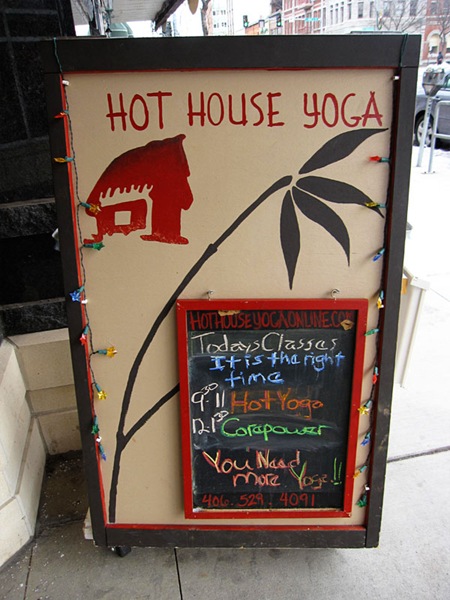 HOT HOUSE YOGA
HOTHOUSEYOGAONLINE.COM
Todays Classes
It is the right
time
9³⁰ 11 Hot Yoga
12 1³⁰ Corepower
You Need
more Yoga!!
406.529.4091